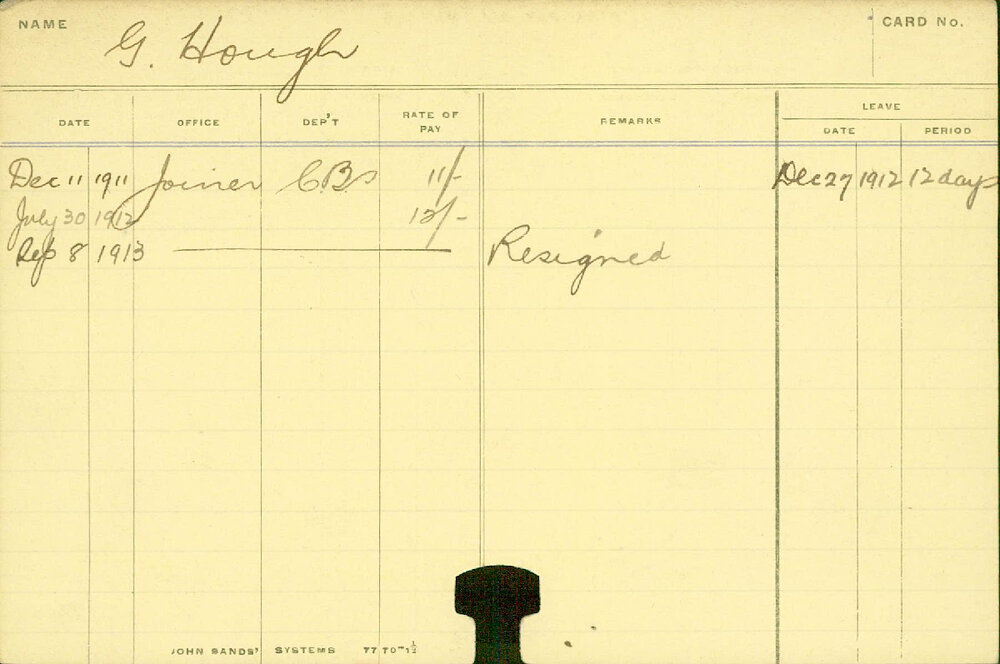 NAME G. Hough CARD No.
LEAVE
DATE OFFICE DEP'T RATE OF PAY REMARKS DATE PERIOD
Dec 11 1911 Joiner C.Bs 11/- Dec 27 1912 12 days
July 30 1912 12/-
Sep 8 1913 Resigned
JOHN SANDS' SYSTEMS